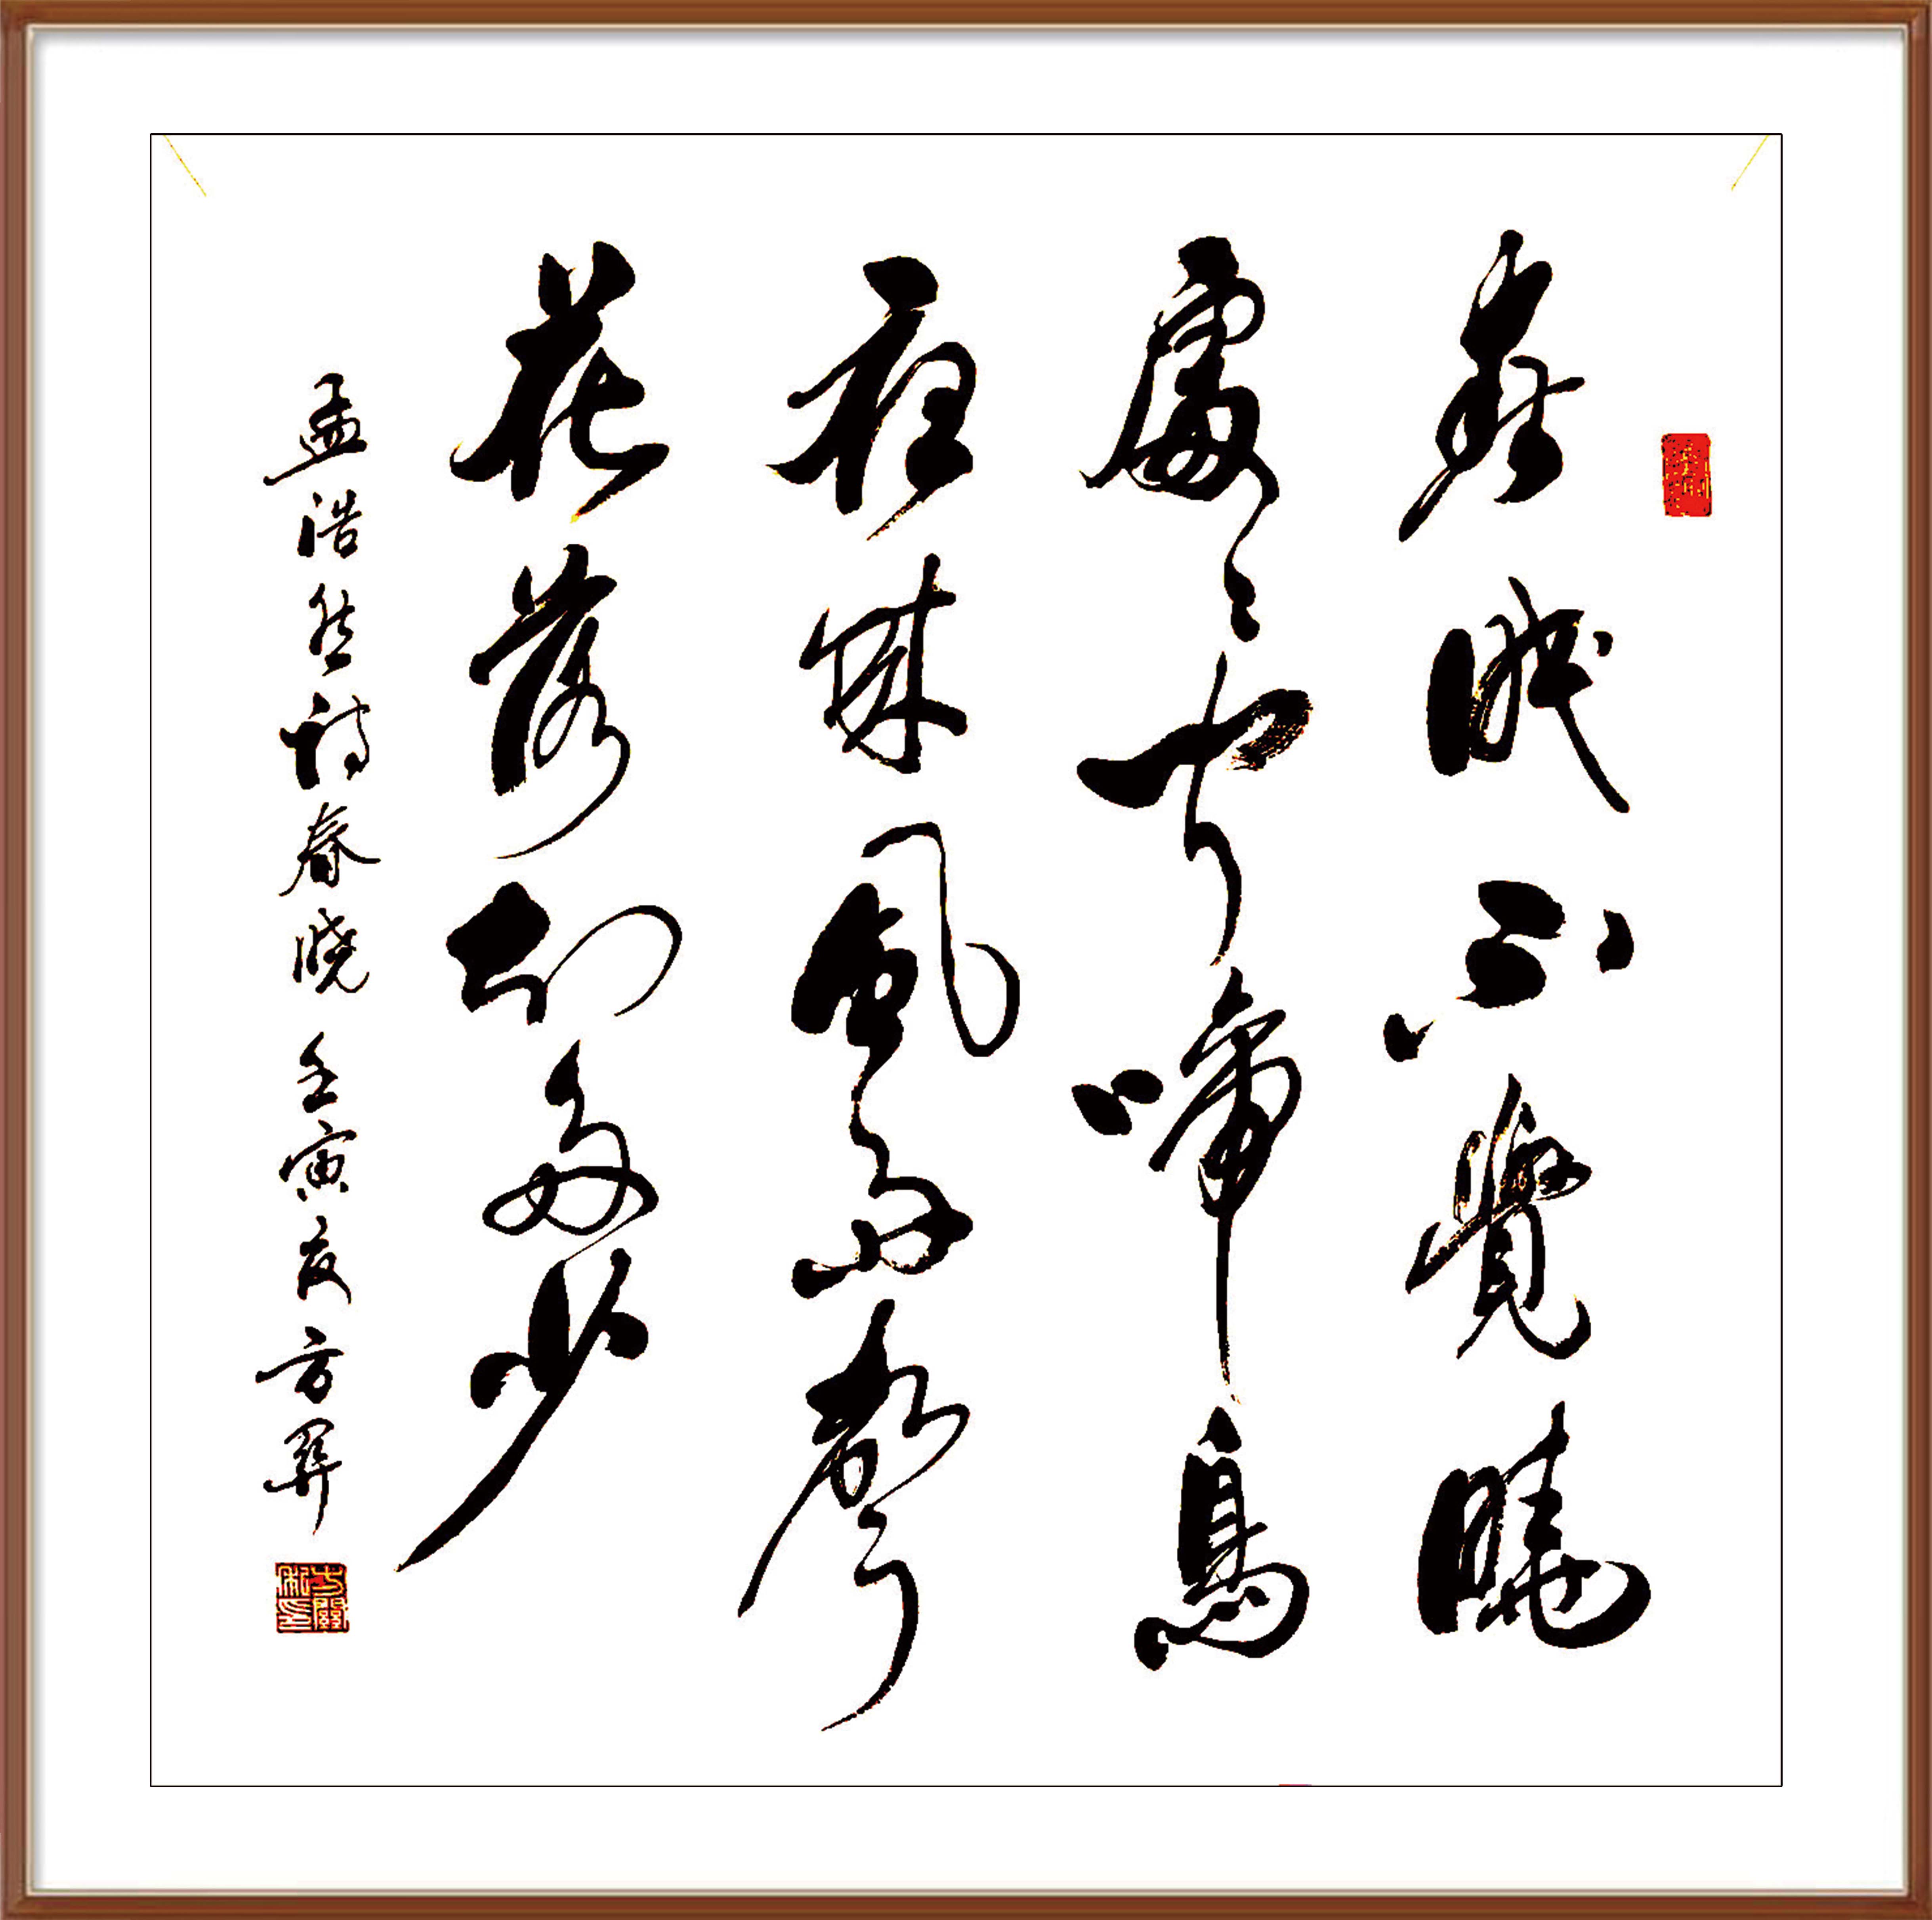 春眠不覺曉
處々聞啼鳥
夜來風雨聲
花落知多少
孟浩然诗春晓 壬寅夏方